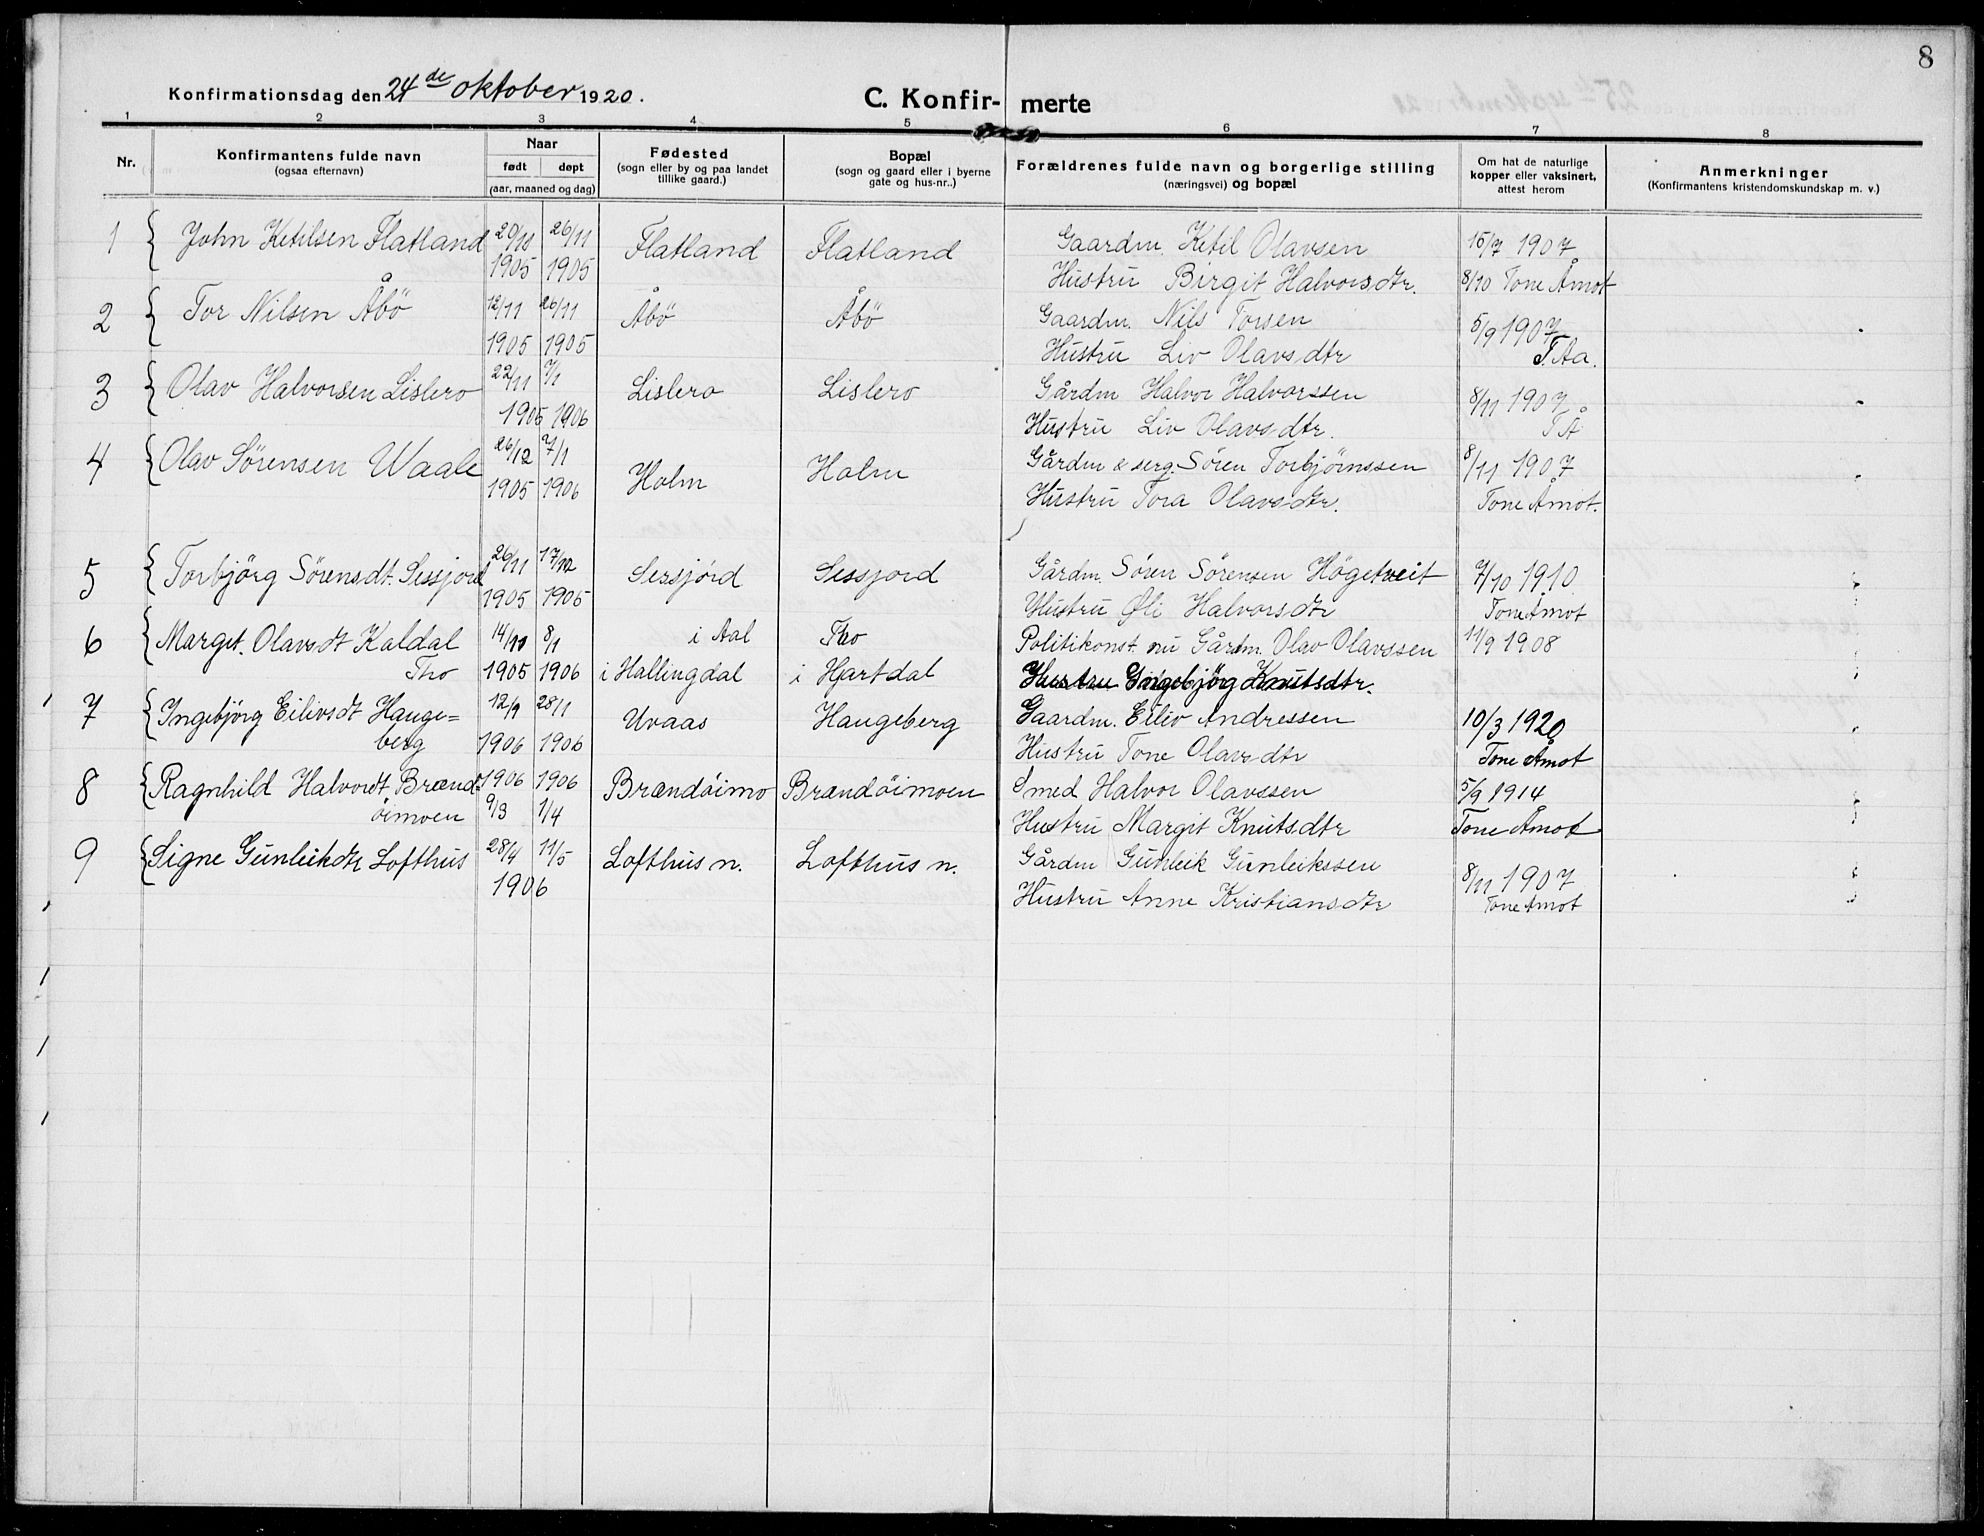 8
Konfirmationsdag den 24de oktober 1920.
C. Konfir- merte
1 2 3 4 5 6 7 8
Nr.
Konfirmantens fulde navn
(ogsaa efternavn)
Naar
født døpt
(aar, maaned og dag)
Fødested
(sogn eller by og paa landet
tillike gaard.)
Bopæl
(sogn og gaard eller i byerne
gate og hus-nr..)
Forældrenes fulde navn og borgerlige stilling
(næringsvei) og bopæl
Om hat de naturlige
kopper eller vaksinert,
attest herom
Anmerkninger
(Konfirmantens kristendomskundskap m. v.)
1 John Ketilsen Flatland 20/11 26/11 Flatland Flatland Gaardm. Ketil Olavsen 15/7 1907
1905 1905 Hustru Birgit Halvorsdtr. 8/10 Tone Åmot
2 Tor Nilsen Åbö 12/11 26/11 Åbö Åbö Gaardm. Nils Torsen 5/9 1907
1905 1905 Hustru Liv Olavsdtr T.Aa.
3 Olav Halvorsen Lislero 22/11 7/1 Lislero Lislero Gårdm Halvor Halvorssen 8/11 1907
1905 1906 Hustru Liv Olavsdtr. T Å
4 Olav Sörensen Waale 26/12 7/1 Holm Holm Gårdm & serg. Sören Torbjörnssen 8/11 1907
1905 1906 Hustru Tora Olavsdtr. Tone Åmot.
5 Torbjörg Sörensdt. Sessjord 26/11 17/12 Sessjord Sessjord Gårdm. Sören Sörensen Högetveit 7/10 1910
1905 1905 Hustru Øli Halvorsdtr Tone Åmot
6 Margit. Olavsdt Kaldal 14/11 8/1 i Aal Tho Politikonst. nu Gårdm. Olav Olavssen 11/9 1908
Tho 1905 1906 i Hallingdal i Hjartdal Hustru Ingebjörg Knutsdtr.
7 Ingebjörg Eilivsdt Hauge= 12/9 28/1 Uvaas Haugeberg Gaardm. Eiliv Andressen 10/3 1920
berg 1906 1906 Hustru Tone Olavsdtr Tone Åmot
8 Ragnhild Halvordt Brænd= 1906 1906 Brændöimo Brændöimoen Smed Halvor Olavssen 5/9 1914
öimoen 9/3 1/4 Hustru Margit Knutsdtr Tone Åmot
9 Signe Gunleikdtr Lofthus 28/4 11/5 Lofthus n. Lofthus n. Gårdm Gunleik Gunleikssen 8/11 1907
1906 Hustru Anne Kristiansdtr Tone Åmot